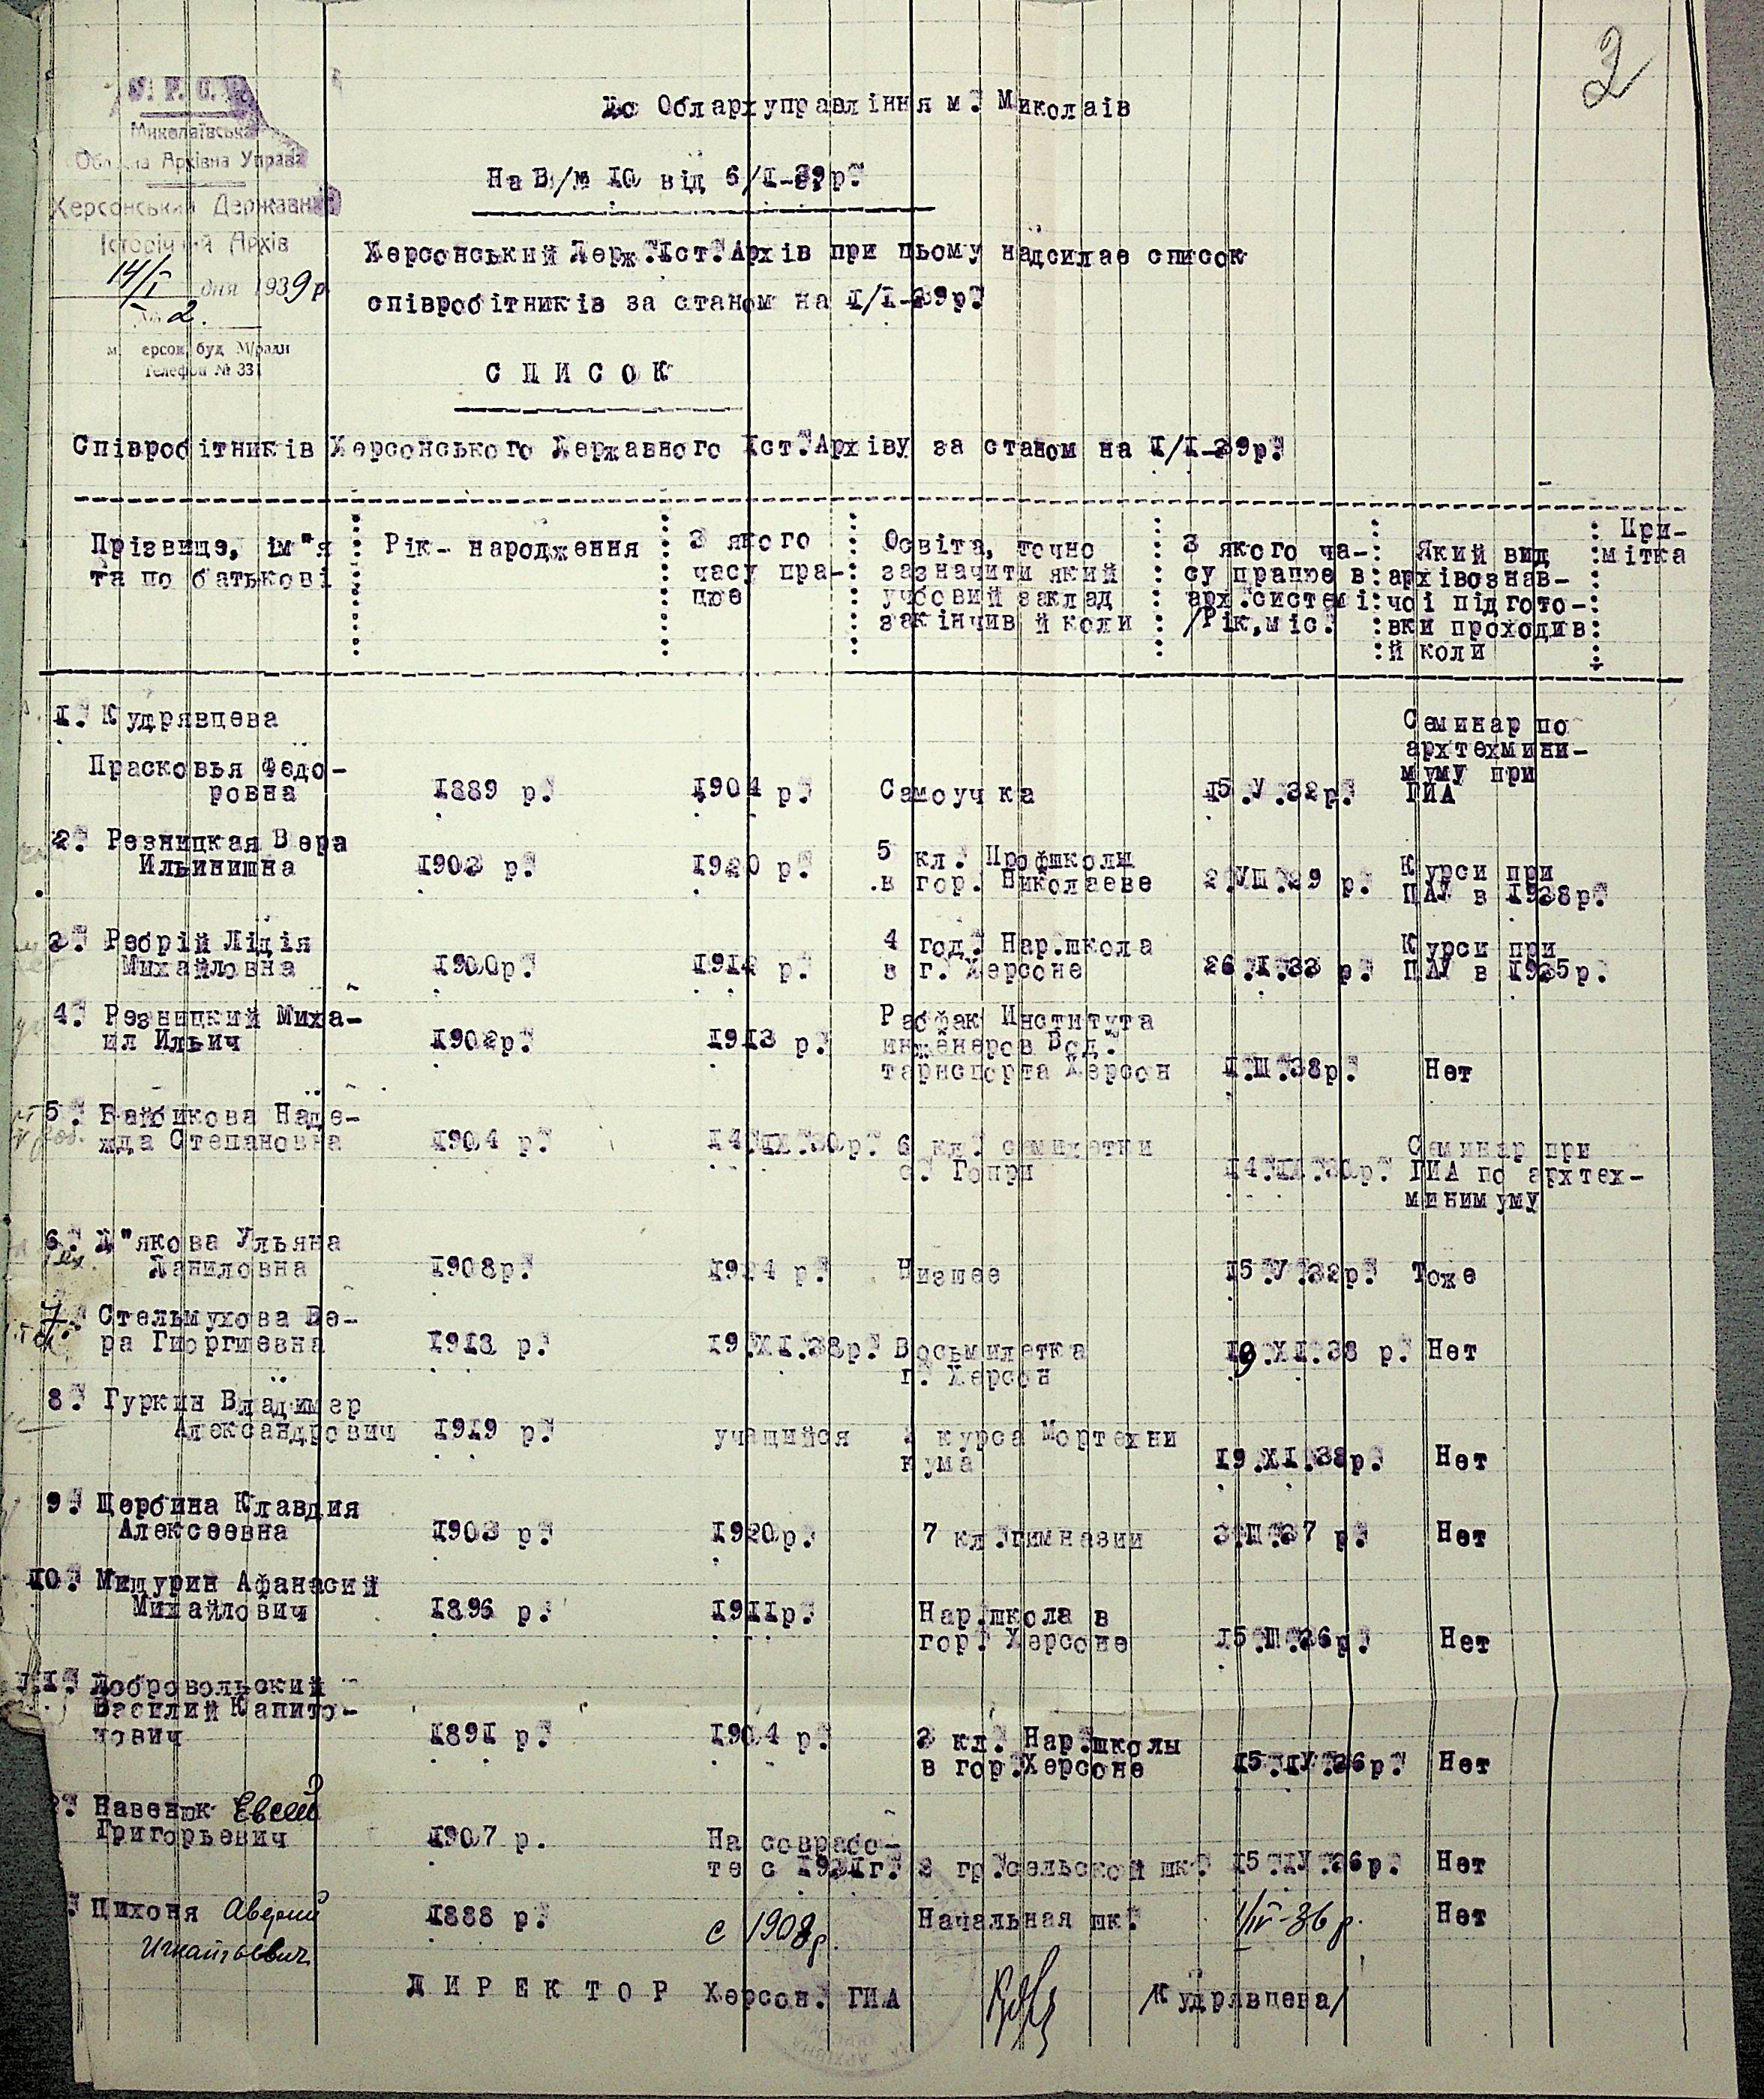 2
У.Р.С.Р.
Миколаївська
Обласна Архівна Управа
Херсонський Державний
Історічний Архів
14/I дня 1939 р.
№ 2.
м. Херсон, буд. М/ради
Телефон № 331
До Облархуправління м. Миколаів
На В/№ 10 від 6/I-39р.
Херсонський Держ.Іст.Архів при цьому надсилае список
співробітників за станом на I/I-39р.
С П И С О К
Співробітників Херсонського Державного Іст.Архіву за станом на I/I-39р.
Прізвище, ім"я
та по батькові
Рік- народження
З якого
часу пра-
цюе
Освіта, точно
зазначити який
учбовий заклад
закінчив й коли
З якого ча-
су працюе в
арх.системі
/Рік,міс.
Який вид
архівознав-
чоі підгото-
вки проходив
й коли
При-
мітка
1. Кудрявцева
Прасковья Федо-
ровна
1889 р.
1904 р.
Самоучка
15.У.32р.
Семинар по
архтехмини-
муму при
ГИА
2. Резницкая Вера
Ильинишна
1903 р.
1920 р.
5 кл. Профшколы
в гор. Николаеве
2.УШ.29 р.
Курси при
ЦАУ в 1938р.
3. Ребрій Лідія
Михайловна
1900р.
1912 р.
4 год. Нар.школа
в г. Херсоне
26.I.33 р.
Курси при
ЦАУ в 1935р.
4. Резницкий Миха-
ил Ильич
1902р.
1913 р.
Рабфак Института
инженеров Вод.
тарнспорта Херсон
I.Ш.38р.
Нет
5. Байбикова Наде-
жда Степановна
1904 р.
14.IX.30р.
6 кл. семилетки
с. Гопри
14.IX.30р.
Семинар при
ГИА по архтех-
минимуму
6. Д"якова Ульяна
Даниловна
1908р.
1924 р.
Низшее
15.У.32р.
Тоже
7. Стельмухова Ве-
ра Гиоргиевна
1913 р.
19.XI.38р.
Восьмилетка
г. Херсон
19.XI.38 р.
Нет
8. Гуркин Владимер
Александрович
1919 р.
учащийся
курса Мортехни
кума
19.XI.38р.
Нет
9. Щербина Клавдия
Алексеевна
1903 р.
1920р.
7 кл.гимназии
3.Ш.37 р.
Нет
10. Мицурин Афанасий
Михайлович
1896 р.
1911р.
Нар.школа в
гор. Херсоне
15.Ш.36р.
Нет
11. Добровольский
Василий Капито-
нович
1891 р.
1904 р.
2 кл. Нар.школы
в гор.Херсоне
15.IУ.36р.
Нет
Навенюк Евсей
Григорьевич
1907 р.
На соврабо-
те с 1931г.
3 гр.сельской шк.
15.IУ.36р.
Нет
Цихоня Аверий
Игнатьевич
1888 р.
с 1908р.
Начальная шк.
1/IV-36 р.
Нет
Д И Р Е К Т О Р Херсон. ГИА
/Кудрявцева/